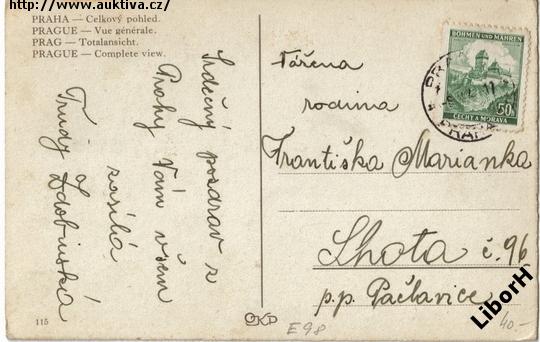 http://www.auktiva.cz/
PRAHA — Celkový pohled.
PRAGUE — Vue générale.
PRAG — Totalansicht.
PRAGUE — Complete view.
Srdečný pozdrav z
Prahy Vám všem
zasílá
Trudy Zdobinská
115
BÖHMEN UND MÄHREN
50h
ČECHY A MORAVA
Fářena
rodina
Františka Marianka
Lhota č. 96
p.p. Pačlavice
E98
40.-
LiborH